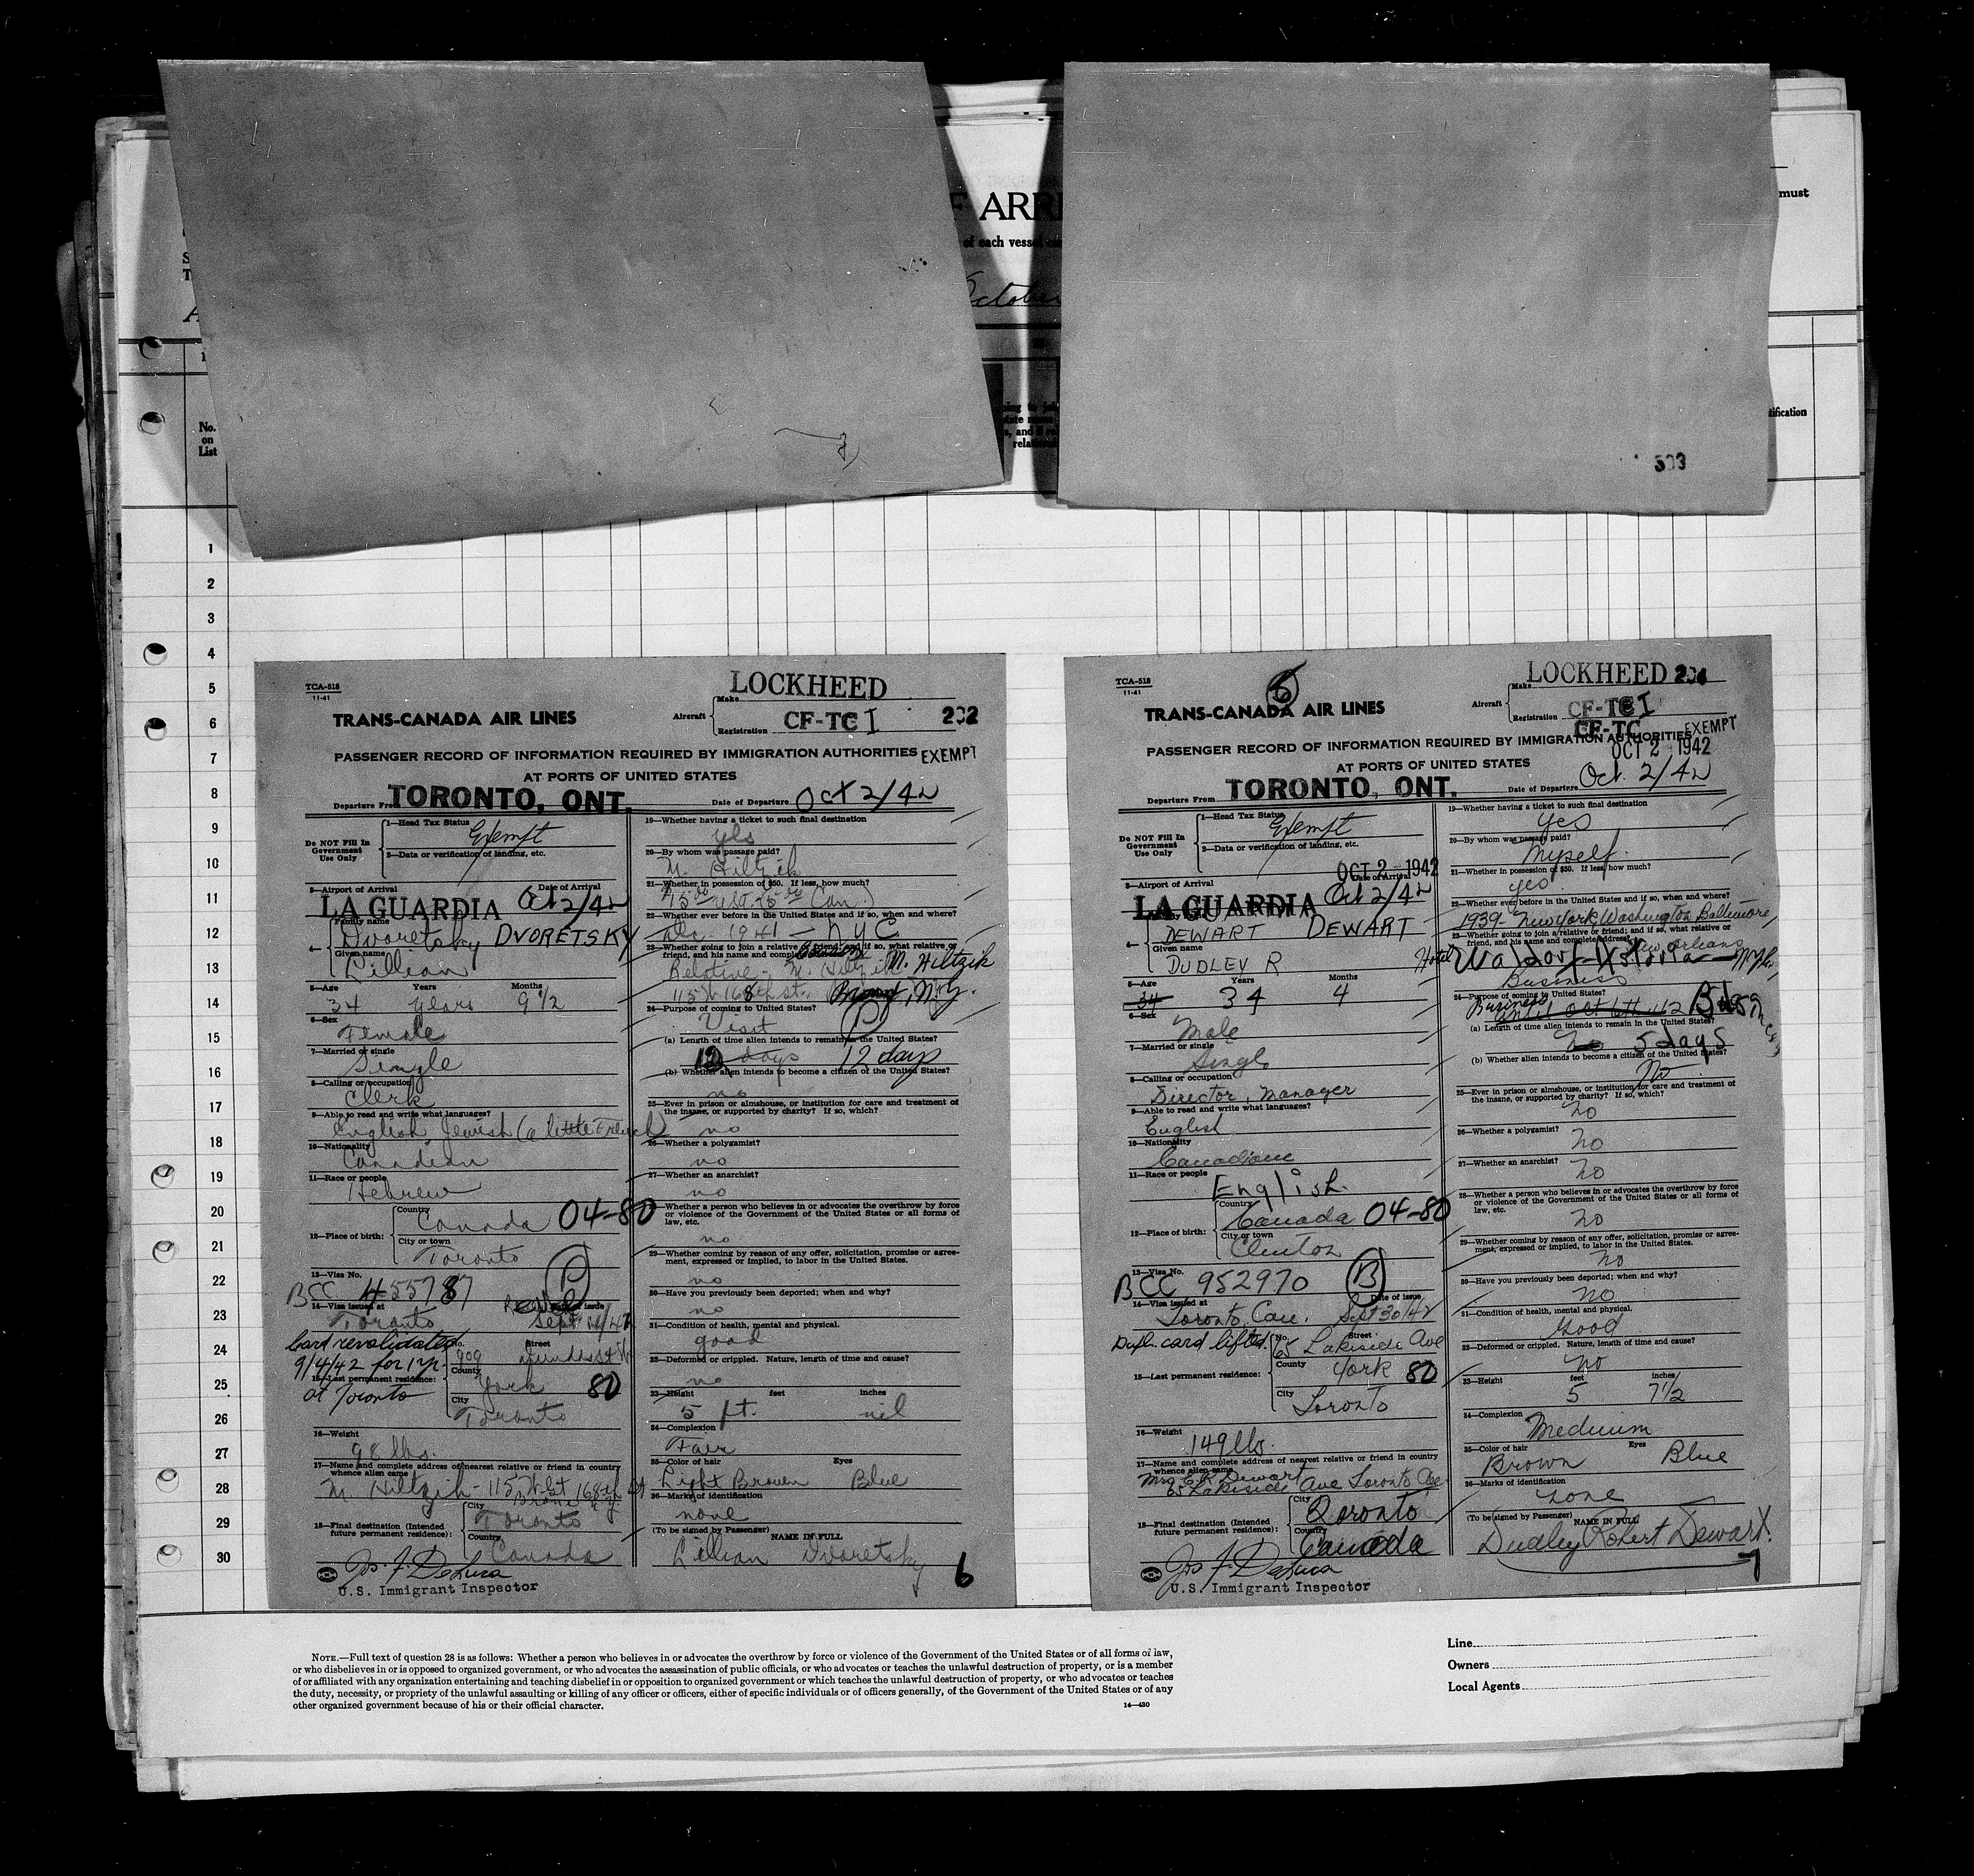 F ARRI
of each vesse
October
must
No.
on
List
tification
503
1
2
3
4
5
6
7
8
9
10
11
12
13
14
15
16
17
18
19
20
21
22
23
24
25
26
27
28
29
30
TCA-518
11-41
LOCKHEED
Make
TRANS-CANADA AIR LINES
Aircraft
Registration CF-TCI
202
PASSENGER RECORD OF INFORMATION REQUIRED BY IMMIGRATION AUTHORITIES EXEMPT
AT PORTS OF UNITED STATES
Departure From TORONTO, ONT.
Date of Departure Oct 2/42
Do NOT Fill In
Government
Use Only
1—Head Tax Status
Exempt
2—Data or verification of landing, etc.
3—Airport of Arrival
Date of Arrival
LA GUARDIA Oct 2/42
4—
Family name
Dvoretsky DVORETSKY
Given name
Lillian
5—Age Years Months
34 years 9 1/2
6—Sex
Female
7—Married or single
Single
8—Calling or occupation
Clerk
9—Able to read and write what languages?
English, Jewish (a little French)
10—Nationality
Canadian
11—Race or people
Hebrew
12—Place of birth:
Country
Canada 04-80
City or town
Toronto
13—Visa No.
BCC 455787 P
14—Visa issued at
Toronto
Sept 4/42
Card revalidated
9/4/42 for 1 yr.
at Toronto
15—Last permanent residence:
No. Street
909 Dundas St W
County
York 80
City
Toronto
16—Weight
98 lbs.
17—Name and complete address of nearest relative or friend in country
whence alien came
M. Hiltzik - 115 W. 168th St
18—Final destination (Intended
future permanent residence):
City
Toronto
Country
Canada
Jos. F. DeLuca
U.S. Immigrant Inspector
19—Whether having a ticket to such final destination
yes
20—By whom was passage paid?
M. Hiltzik
21—Whether in possession of $50. If less, how much?
22—Whether ever before in the United States and if so, when and where?
Dec. 1941 — NYC
23—Whether going to join a relative or friend; and if so, what relative or
friend, and his name and complete address
Relative - M. Hiltzik M. Hiltzik
115 W 168th St., Bronx, N.Y.
24—Purpose of coming to United States?
Visit P
(a) Length of time alien intends to remain in the United States?
12 days 12 days
(b) Whether alien intends to become a citizen of the United States?
no
25—Ever in prison or almshouse, or institution for care and treatment of
the insane, or supported by charity? If so, which?
no
26—Whether a polygamist?
no
27—Whether an anarchist?
no
28—Whether a person who believes in or advocates the overthrow by force
or violence of the Government of the United States or all forms of
law, etc.
no
29—Whether coming by reason of any offer, solicitation, promise or agree-
ment, expressed or implied, to labor in the United States.
no
30—Have you previously been deported; when and why?
no
31—Condition of health, mental and physical.
good
32—Deformed or crippled. Nature, length of time and cause?
no
33—Height feet inches
5 ft. nil
34—Complexion
Fair
35—Color of hair Eyes
Light Brown Blue
36—Marks of identification
none
(To be signed by Passenger) NAME IN FULL
Lillian Dvoretsky
6
TCA-518
11-41
6
LOCKHEED 204
Make
TRANS-CANADA AIR LINES
Aircraft
Registration CF-TCI
CF-TC
EXEMPT
PASSENGER RECORD OF INFORMATION REQUIRED BY IMMIGRATION AUTHORITIES
OCT 2 - 1942
AT PORTS OF UNITED STATES
Departure From TORONTO, ONT.
Date of Departure Oct. 2/42
Do NOT Fill In
Government
Use Only
1—Head Tax Status
Exempt
2—Data or verification of landing, etc.
OCT 2 - 1942
3—Airport of Arrival
Date of Arrival
LA GUARDIA Oct 2/42
4—
DEWART DEWART
Given name
DUDLEY R
5—Age Years Months
34 34 4
6—Sex
Male
7—Married or single
Single
8—Calling or occupation
Director, Manager
9—Able to read and write what languages?
English
10—Nationality
Canadian
11—Race or people
English.
12—Place of birth:
Country
Canada 04-80
City or town
Clinton
13—Visa No.
BCC 952970 B
14—Visa issued at
Date of issue
Toronto, Can. Sept 30/42
Dupl. card lifted.
No. Street
65 Lakeside Ave
15—Last permanent residence:
County
York 80
City
Toronto
16—Weight
149 lbs.
17—Name and complete address of nearest relative or friend in country
whence alien came
Mrs E.R. Dewart
65 Lakeside Ave Toronto
18—Final destination (Intended
future permanent residence):
City
Toronto
Country
Canada
Jos. F. DeLuca
U.S. Immigrant Inspector
19—Whether having a ticket to such final destination
yes
20—By whom was passage paid?
Myself.
21—Whether in possession of $50. If less, how much?
yes
22—Whether ever before in the United States and if so, when and where?
1939- New York Washington Baltimore
New Orleans
23—Whether going to join a relative or friend; and if so, what relative or
friend, and his name and complete address
Hotel Waldorf-Astoria - NYC.
Business
24—Purpose of coming to United States?
Business
until Oct 6th 42
(a) Length of time alien intends to remain in the United States?
no 5 days
(b) Whether alien intends to become a citizen of the United States?
No
25—Ever in prison or almshouse, or institution for care and treatment of
the insane, or supported by charity? If so, which?
no
26—Whether a polygamist?
no
27—Whether an anarchist?
no
28—Whether a person who believes in or advocates the overthrow by force
or violence of the Government of the United States or all forms of
law, etc.
no
29—Whether coming by reason of any offer, solicitation, promise or agree-
ment, expressed or implied, to labor in the United States.
no
30—Have you previously been deported; when and why?
no
31—Condition of health, mental and physical.
Good
32—Deformed or crippled. Nature, length of time and cause?
no
33—Height feet inches
5 7 1/2
34—Complexion
Medium
35—Color of hair Eyes
Brown Blue
36—Marks of identification
none
(To be signed by Passenger) NAME IN FULL
Dudley Robert Dewart.
7
NOTE.—Full text of question 28 is as follows: Whether a person who believes in or advocates the overthrow by force or violence of the Government of the United States or of all forms of law,
or who disbelieves in or is opposed to organized government, or who advocates the assassination of public officials, or who advocates or teaches the unlawful destruction of property, or is a member
of or affiliated with any organization entertaining and teaching disbelief in or opposition to organized government or which teaches the unlawful destruction of property, or who advocates or teaches
the duty, necessity, or propriety of the unlawful assaulting or killing of any officer or officers, either of specific individuals or of officers generally, of the Government of the United States or of any
other organized government because of his or their official character.
14—430
Line
Owners
Local Agents